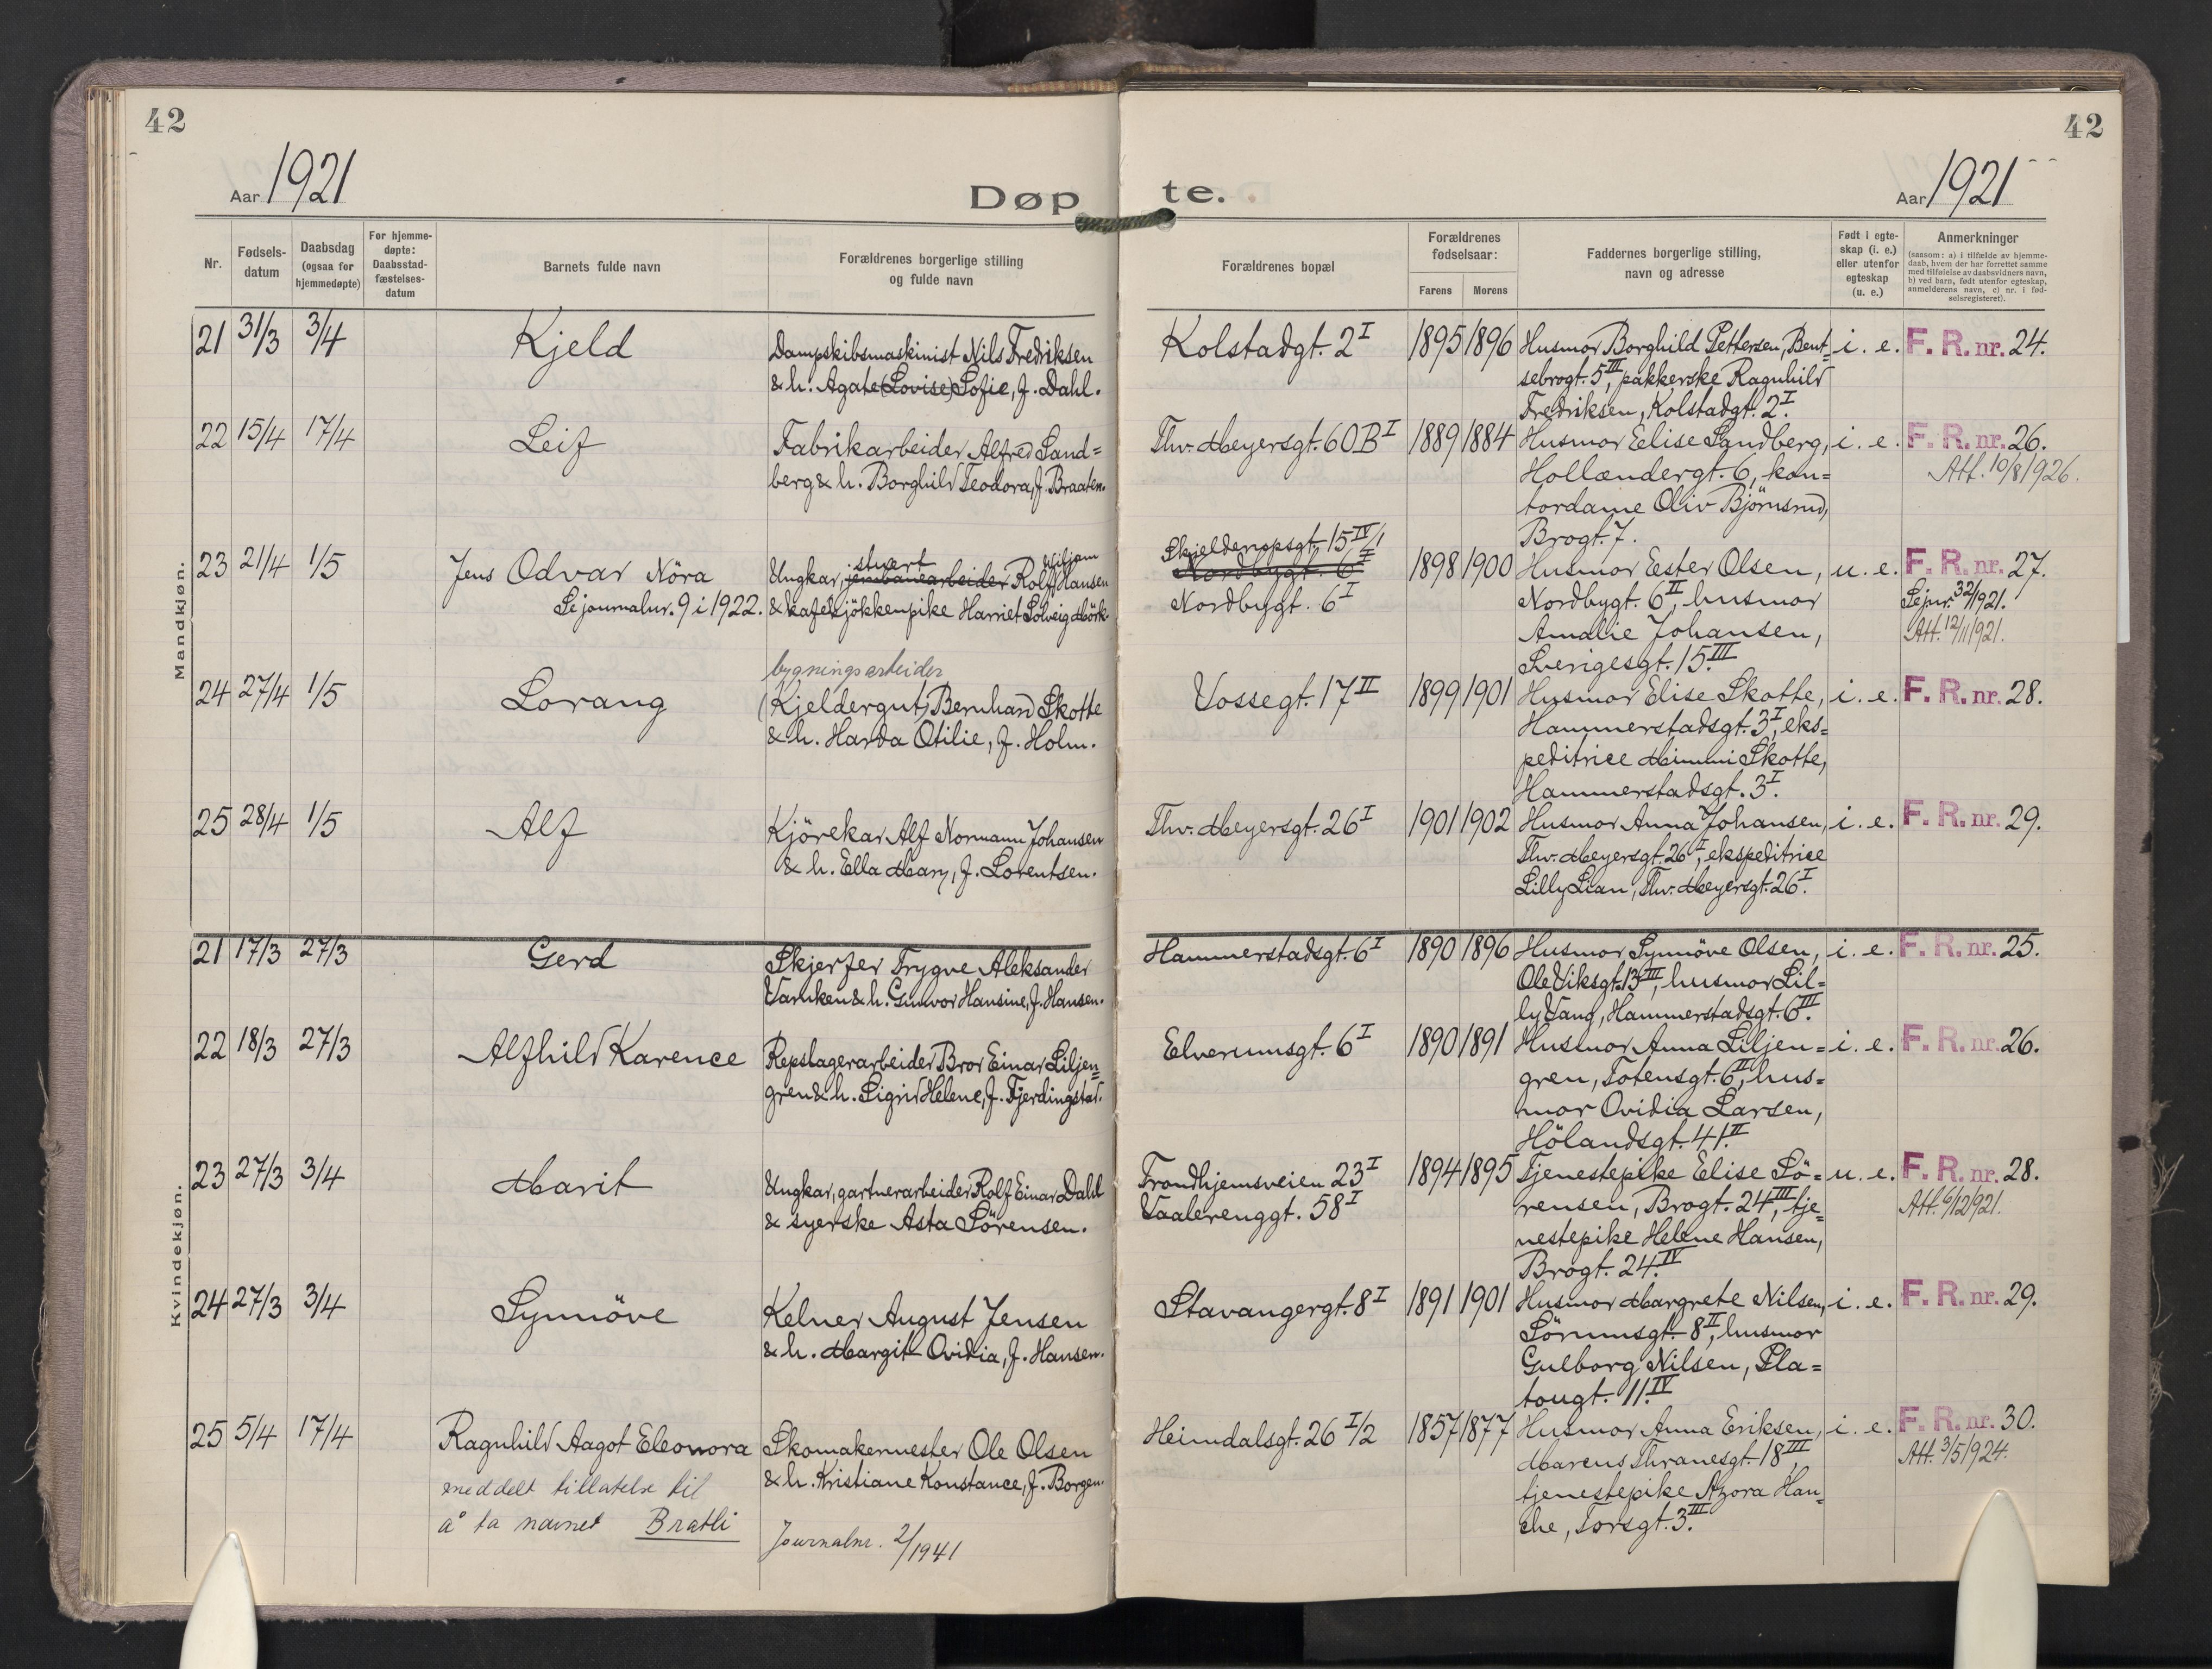 42
42
Aar 1921
Døpte.
Aar 1921
Nr.
Fødsels-
datum
Daabsdag
(ogsaa for
hjemmedøpte)
For hjemme-
døpte:
Daabsstad-
fæstelses-
datum
Barnets fulde navn
Forældrenes borgerlige stilling
og fulde navn
Forældrenes bopæl
Forældrenes
fødselsaar:
Farens
Morens
Faddernes borgerlige stilling,
navn og adresse
Født i egte-
skap (i. e.)
eller utenfor
egteskap
(u. e.)
Anmerkninger
(saasom: a) i tilfælde av hjemme-
daab, hvem der har forrettet samme
med tilføielse av daabsvidners navn,
b) ved barn, født utenfor egteskap,
anmelderens navn, c) nr. i fød-
selsregisteret).
Mandkjøn.
21 31/3 3/4 Kjeld
Dampskibsmaskinist Nils Fredriksen
& h. Agate (Lovise) Sofie, f. Dahl.
Kolstadgt. 2 I 1895 1896
Husmor Borghild Pettersen, Bent=
sebrogt. 5 III, pakkerske Ragnhild
Fredriksen, Kolstadgt. 2 I.
i. e. F. R. nr. 24.
22 15/4 17/4 Leif
Fabrikarbeider Alfred Sand=
berg & h. Borghild Teodora, f. Braaten.
Thv. Meyersgt. 60 B I 1889 1884
Husmor Elise Sandberg,
Hollændergt. 6, kon=
tordame Oliv Björnsrud,
Brogt. 7.
i. e. F. R. nr. 26.
Att. 10/8 1926.
23 21/4 1/5 Jens Odvar Nöra
Se journalnr. 9 i 1922.
stuert Viljam
Ungkar, jernbanearbeider Rolf Hansen
& kafekjökkenpike Harriet Solveig Mörk.
Skjelderupsgt. 15 IV/1
Nordbygt. 6 I
Nordbygt. 6 I
1898 1900
Husmor Ester Olsen,
Nordbygt. 6 II, husmor
Amalie Johansen,
Sverigesgt. 15 III.
u. e. F. R. nr. 27.
Se jnr. 32/1921.
Att. 12/11 1921.
24 27/4 1/5 Lorang
bygningsarbeider
(Kjeldergut) Bernhard Skotte
& h. Harda Otilie, f. Holm.
Vossegt. 17 II 1899 1901
Husmor Elise Skotte,
Hammerstadsgt. 3 I, eks=
peditrice Mimmi Skotte,
Hammerstadsgt. 3 I.
i. e. F. R. nr. 28.
25 28/4 1/5 Alf
Kjörekar Alf Normann Johansen
& h. Ella Mary, f. Lorentsen.
Thv. Meyersgt. 26 I 1901 1902
Husmor Anna Johansen,
Thv. Meyersgt. 26 I, ekspeditrice
Lilly Lian, Thv. Meyersgt. 26 I.
i. e. F. R. nr. 29.
Kvindekjøn.
21 17/3 27/3 Gerd
Skjerfer Trygve Aleksander
& h. Gunvor Hansine, f. Hansen.
Hammerstadsgt. 6 I 1890 1896
Husmor Synnöve Olsen,
Ole Viksgt. 13 III, husmor Lil=
ly Vang, Hammerstadsgt. 6 III.
i. e. F. R. nr. 25.
22 18/3 27/3 Alfhild Karence
Repslagerarbeider Bror Einar Liljen=
gren & h. Sigrid Helene, f. Fjerdingstad.
Elverumsgt. 6 I 1890 1891
Husmor Anna Liljen=
gren, Totensgt. 6 II, hus=
mor Ovidia Larsen,
Hölandsgt. 41 II
i. e. F. R. nr. 26.
23 27/3 3/4 Marit
Ungkar, gartnerarbeider Rolf Einar Dahl
& syerske Asta Sörensen.
Trondhjemsveien 23 I
Vaalerenggt. 58 I
1894 1895
Tjenestepike Elise Sö=
rensen, Brogt. 24 III, tje=
nestepike Helene Hansen,
Brogt. 24 IV.
u. e. F. R. nr. 28.
Att. 6/12 1921.
24 27/3 3/4 Synnöve
Kelner August Jensen
& h. Margit Ovidia, f. Hansen.
Stavangergt. 8 I 1891 1901
Husmor Margrete Nilsen,
Sörumsgt. 8 II, husmor
Gulborg Nilsen, Pla=
tougt. 11 IV
i. e. F. R. nr. 29.
25 5/4 17/4 Ragnhild Aagot Eleonora
meddelt tillatelse til
å ta navnet Bratli
Skomakermester Ole Olsen
& h. Kristiane Konstance, f. Borgen.
Journalnr. 2/1941
Heimdalsgt. 26 I/2 1857 1877
Husmor Anna Eriksen,
Marcus Thranesgt. 18 III,
tjenestepike Azora Han=
che, Torsgt. 3 III.
i. e. F. R. nr. 30.
Att. 3/5 1924.